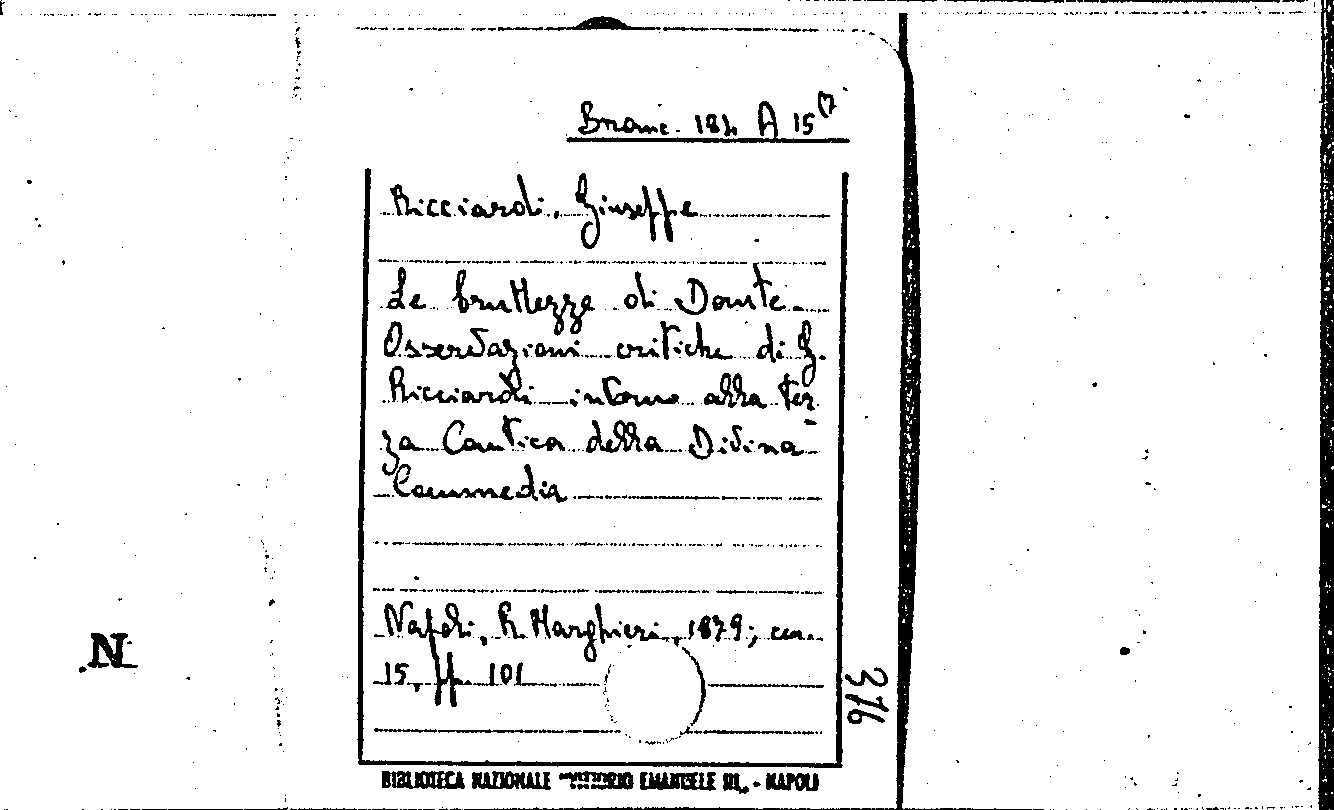 Branc. 184 A 15(7
Ricciardi, Giuseppe
Le bruttezze di Dante.
Osservazioni critiche di G.
Ricciardi intorno alla ter
za Cantica della Divina
Commedia
Napoli, R. Marghieri, 1879; cm.
15, pp. 101
316
N
BIBLIOTECA NAZIONALE "VITTORIO EMANUELE III„ - NAPOLI